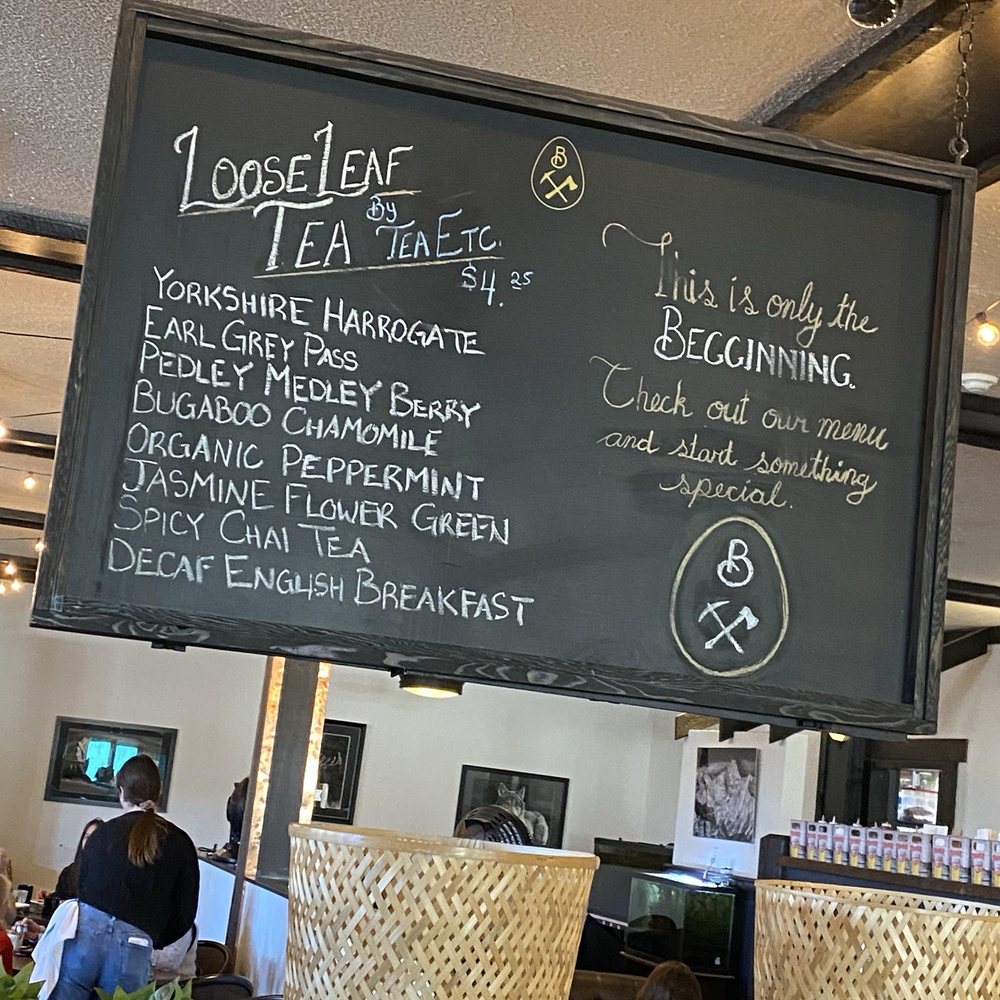 Loose Leaf
Tea By Tea Etc.
$4.25
Yorkshire Harrogate
Earl Grey Pass
Pedley Medley Berry
Bugaboo Chamomile
Organic Peppermint
Jasmine Flower Green
Spicy Chai Tea
Decaf English Breakfast
B
This is only the
Begginning.
Check out our menu
and start something
special.
B